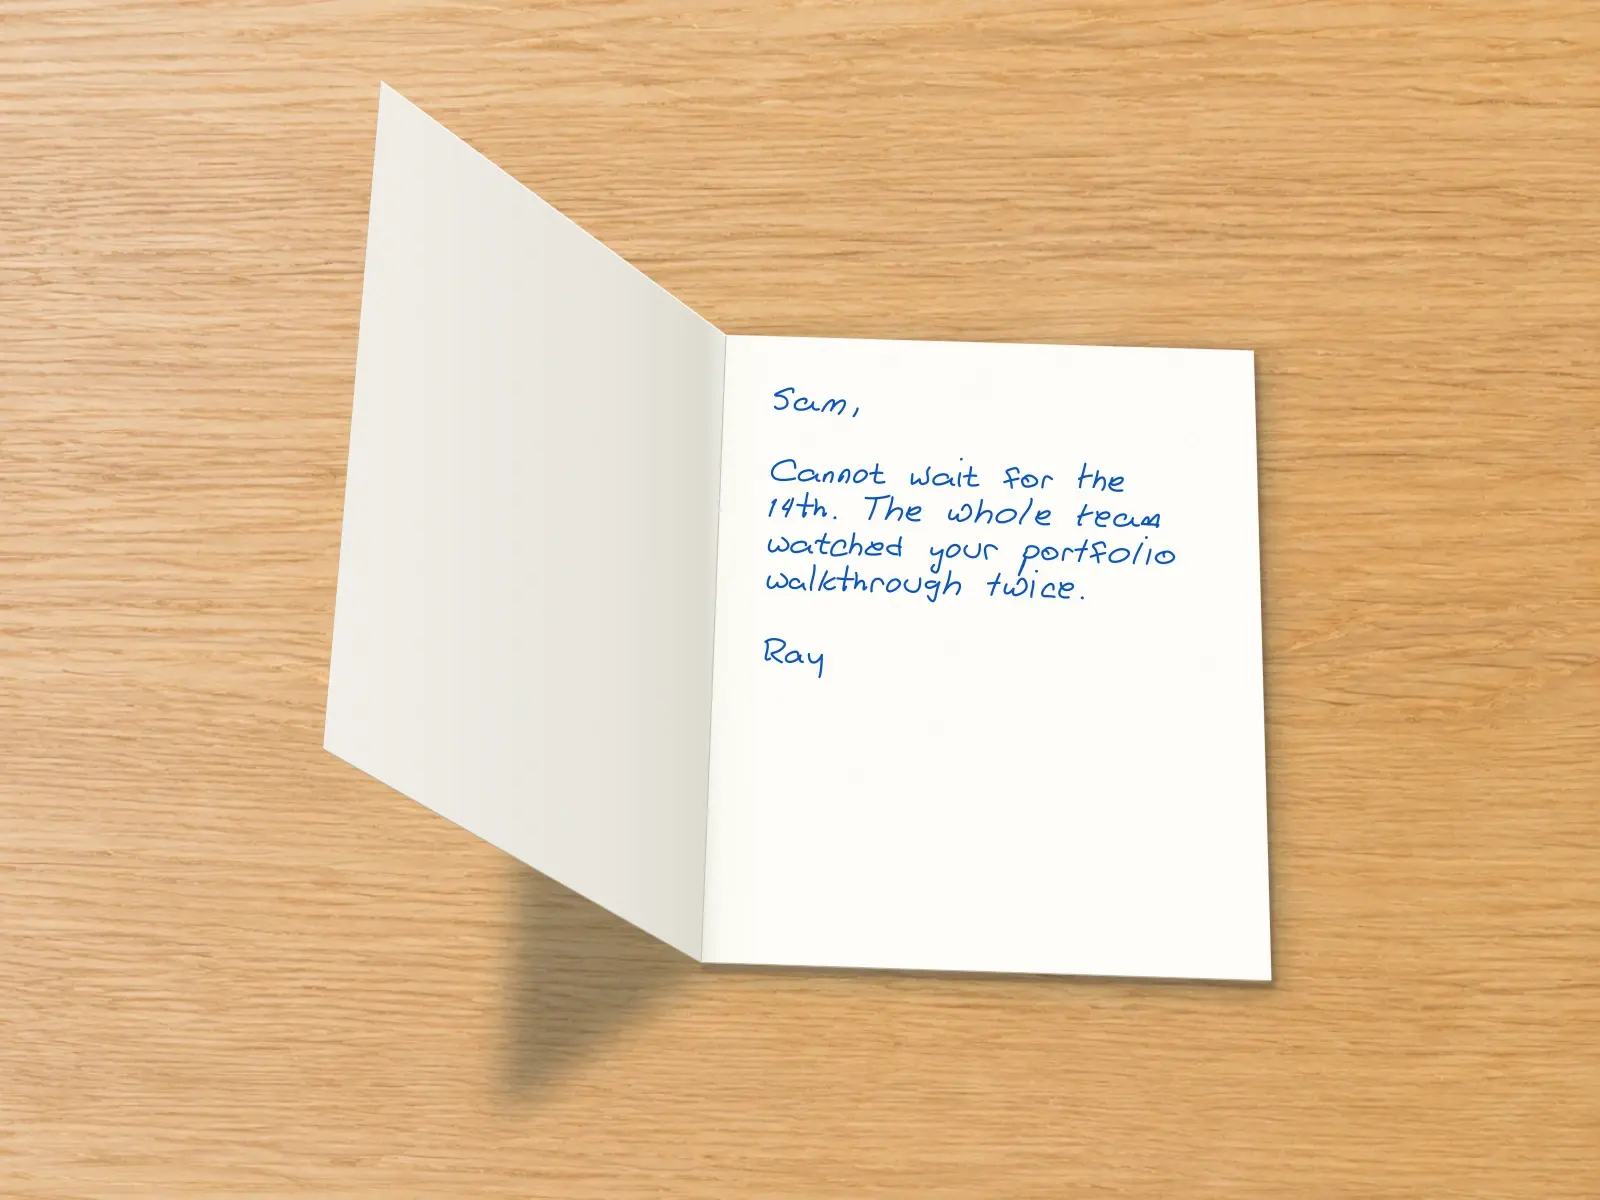 Sam,
Cannot wait for the
14th. The whole team
watched your portfolio
walkthrough twice.
Ray